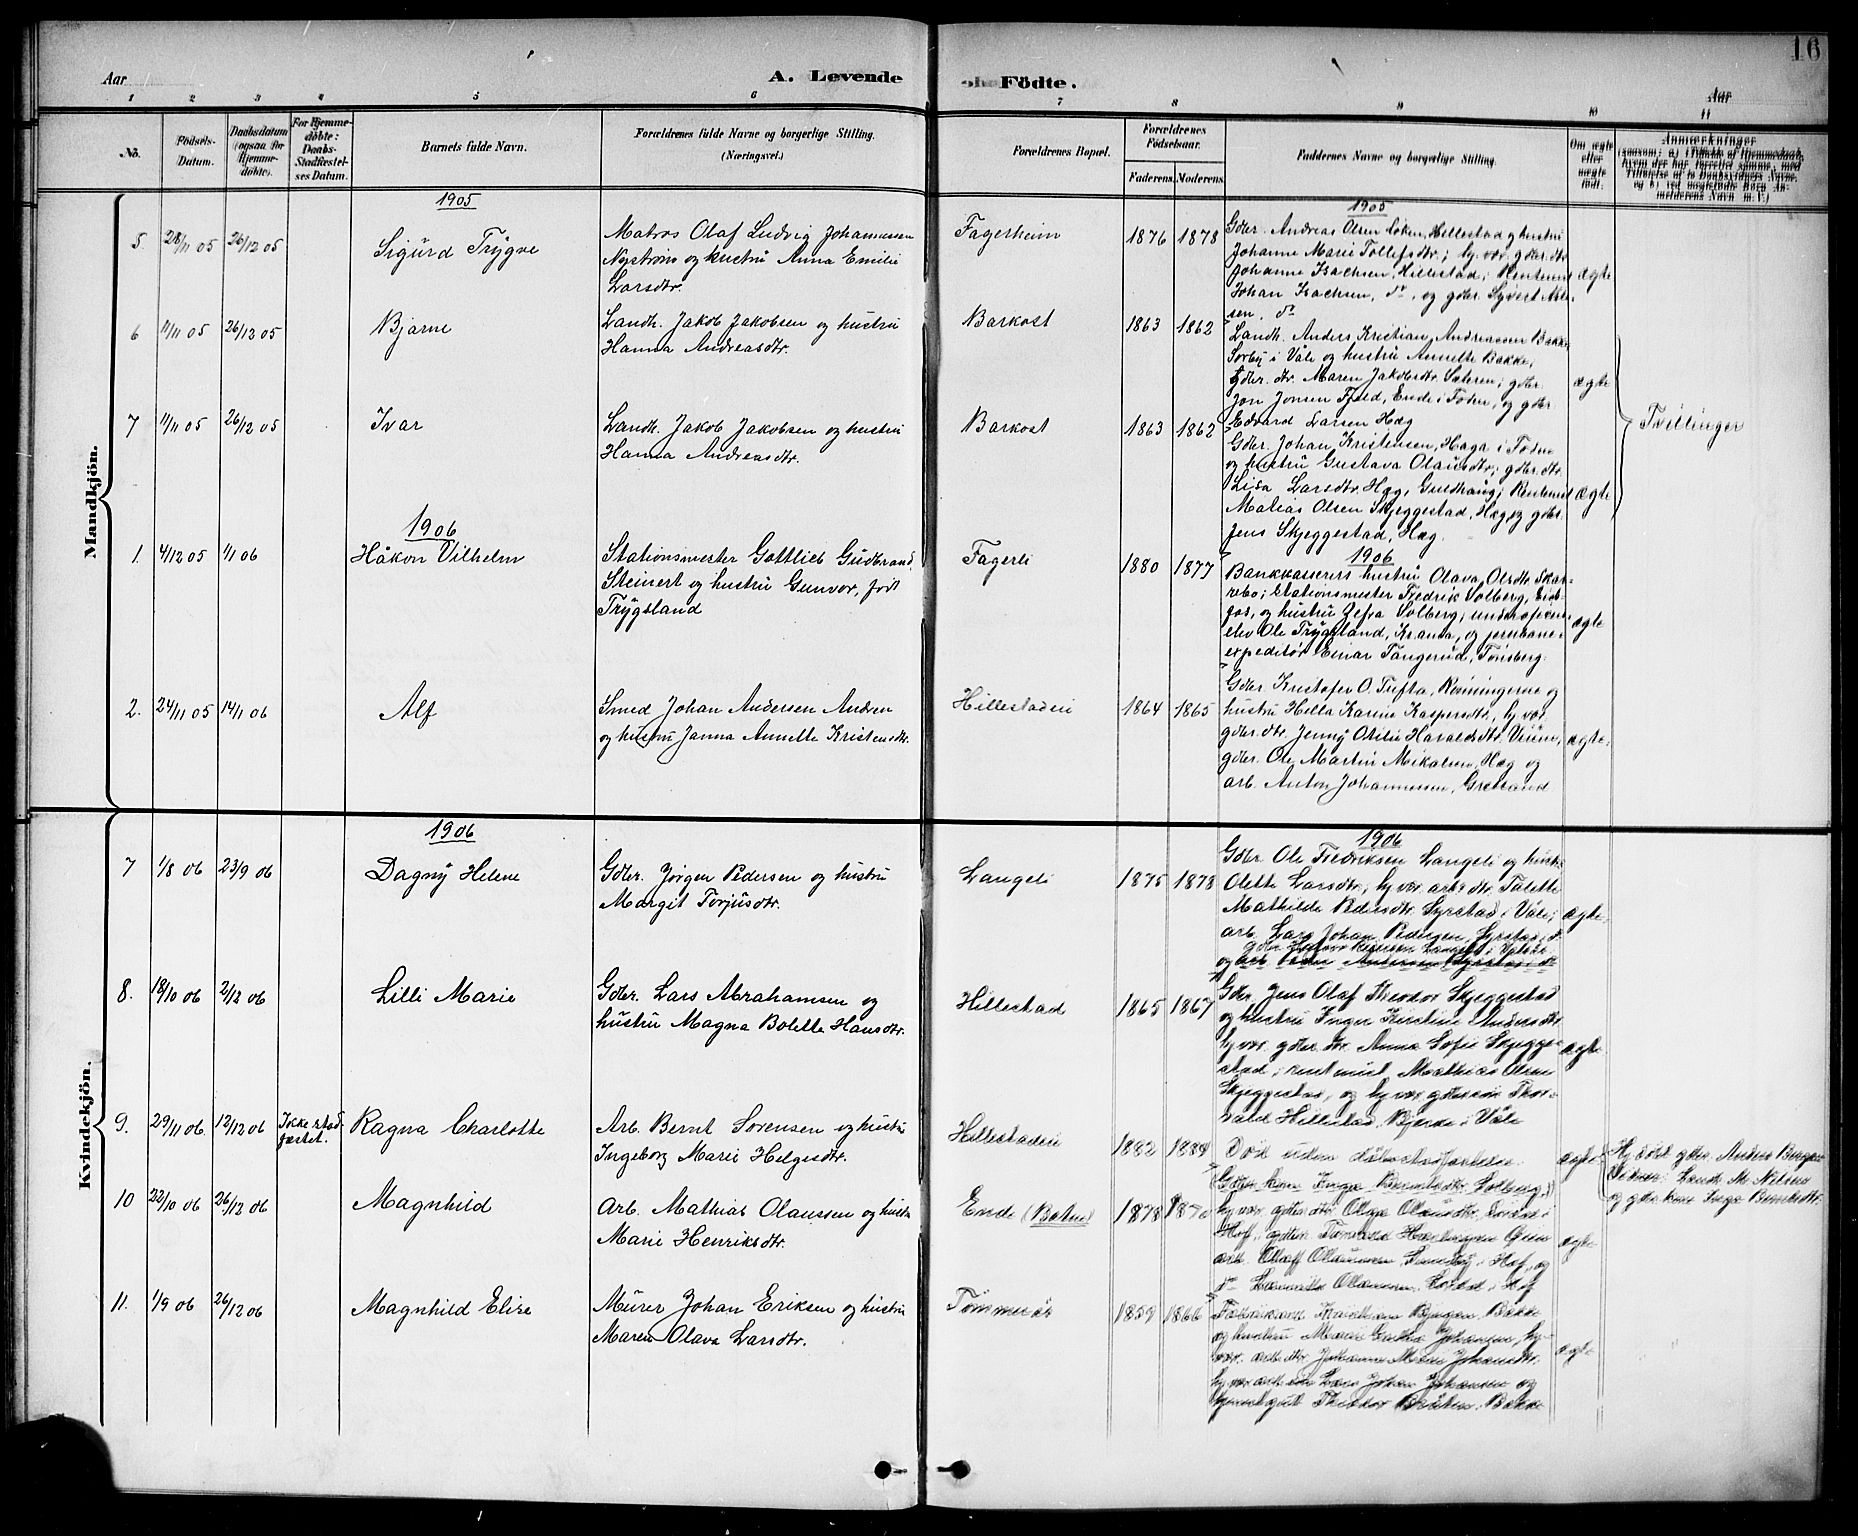 16
Aar
A. Levende
Födte.
Aar
1 2 3 4 5 6 7 8 9 10 11
No.
Födsels-Datum.
Daabsdatum (ogsaa for Hjemme-döbte).
For Hjemme-döbte: Daabs-Stadfæstel-ses Datum.
Barnets fulde Navn.
Forældrenes fulde Navne og borgerlige Stilling.
(Næringsvei.)
Forældrenes Bopæl.
Forældrenes Födselsaar.
Faderens. Moderens.
Faddernes Navne og borgerlige Stilling.
Om ægte eller uægte födt.
Anmærkninger
Mandkjön.
1905
1905
5. 28/11 05 26/12 05 Sigurd Trygve
Matros Olaf Ludvig Johannessen
Nyström og hustru Anna Emilie
Larsdtr.
Fagerheim 1876 1878
Gdbr. Andreas Olsen Løken, Hillestad og hustru
Johanne Marie Tollefsdtr.; hj. vær. gdbr. dtr.
Johanne Isachsen, Hillestad; Rentenist
Johan Isachsen, do, og gdbr. Syvert
sen, do
ægte
6 11/11 05 26/12 05 Bjarne
Landh. Jakob Jakobsen og hustru
Hanna Andreasdtr.
Barkost 1863 1862
Landh. Anders Kristian Andreassen Bakke,
Sørby i Våle og hustru Annette Bakke,
gdbr. dtr. Maren Jakobsdtr. Sæteren; gdbr.
Jon Jonsen Fjeld, Ende i Fohn, og gdbr.
Edvard Larsen Hæg
ægte
7 11/11 05 26/12 05 Ivar
Landh. Jakob Jakobsen og hustru
Hanna Andreasdtr.
Barkost 1863 1862
Gdbr. Johan Kristensen, Haga i
og hustru Gustava Olausdtr.; gdbr. dtr.
Lisa Larsdtr. Hæg, Rentenist
Matias Olsen Skjeggestad, Hæg og gdbr.
Jens Skjeggestad, Hæg.
ægte
Tvillinger
1906
1906
1. 4/12 05 1/1 06 Håkon Vilhelm
Stationsmester Gottlieb Gudbrand
Steinert og hustru Gunvor, født
Trygsland
Fagerli 1880 1877
Bankkasserers hustru Olava Olsdtr. Ska-
rebo; Stationsmester Fredrik Solberg, Eids-
fos, og hustru Zefa Solberg; underoficers-
elev Ole Trygsland, Kr.ania, og jernbane-
expeditør Einar Tangerud, Tønsberg.
ægte
2. 24/11 05 14/1 06 Alf
Smed Johan Andersen Andren
og hustru Janna Annette Kristensdtr.
Hillestadei 1864 1865
Gdbr. Kristofer O. Tufta, Rønningerne og
hustru Hella Karine Kaspersdtr., hj. vær.
gdbr. dtr. Jenny Otilie Haraldsdtr.
gdbr. Ole Martin Mikalsen, Hæg og
arb. Anton Johannessen, Gretsrand
ægte.
Kvindekjön.
1906
1906
7 1/8 06 23/9 06 Dagny Helene
Gdbr. Jørgen Pedersen og hustru
Margit Torjusdtr.
Langeli 1875 1878
Gdbr. Ole Fredriksen Langeli og hustru
Olette Larsdtr., hj. vær. arb. dtr. Talette
Mathilde Pedersdtr. Syrstad i Våle;
arb. Lars Johan Pedersen, Syrstad i do
og arb. Peder Andersen Syrstad i do
ægte
8. 18/10 06 2/12 06 Lilli Marie
Gdbr. Lars Abrahamsen og
hustru Magna Bolette Hansdtr.
Hillestad 1865 1867
Gdbr. Jens Olaf Theodor Skjeggestad
og hustru Inger Kirstine Andersdtr
hj. vær. gdbr. dtr. Anna Sofie Skjegge-
stad; rentenist Mathias Olsen
Skjeggestad, og hj. vær. gdbr. søn Thor-
vald Hillestad, Bjerde i Våle
ægte
9. 29/11 06. 12/12 06 Ikke stad-
fæstet.
Ragna Charlotte
Arb. Bernt Sørensen og hustru
Ingeborg Marie Helgesdtr.
Hillestadei 1882 1884
Død uden dåbsstadfæstelse.
ægte
Hj. døbt gdbr. Anders Bergan
Vidner: Landh.
og gdbr. kone Inga Berntsdtr.
10 22/10 06 26/12 06 Magnhild
Arb. Mathias Olaussen og hustru
Marie Henriksdtr.
Ende (Botne) 1878
Gdbr. kone Inga Berntsdtr. Solberg,
hj. vær. gdbr. dtr. Olga Olausdtr.
Hof,
arb. Olaff Olaussen, i Hof, og
i Hof
ægte
11. 1/9 06 26/12 06 Magnhild Elise
Mürer Johan Eriksen og hustru
Maren Olava Larsdtr.
Tømmerås 1859 1866
Bakke
og hustru Johansen, hj.
vær. arb. dtr. Johanne Marie Johansdtr.
hj. vær. arb. søn Lars Johan Johansen og
Theodor Bråten, Bakke
ægte